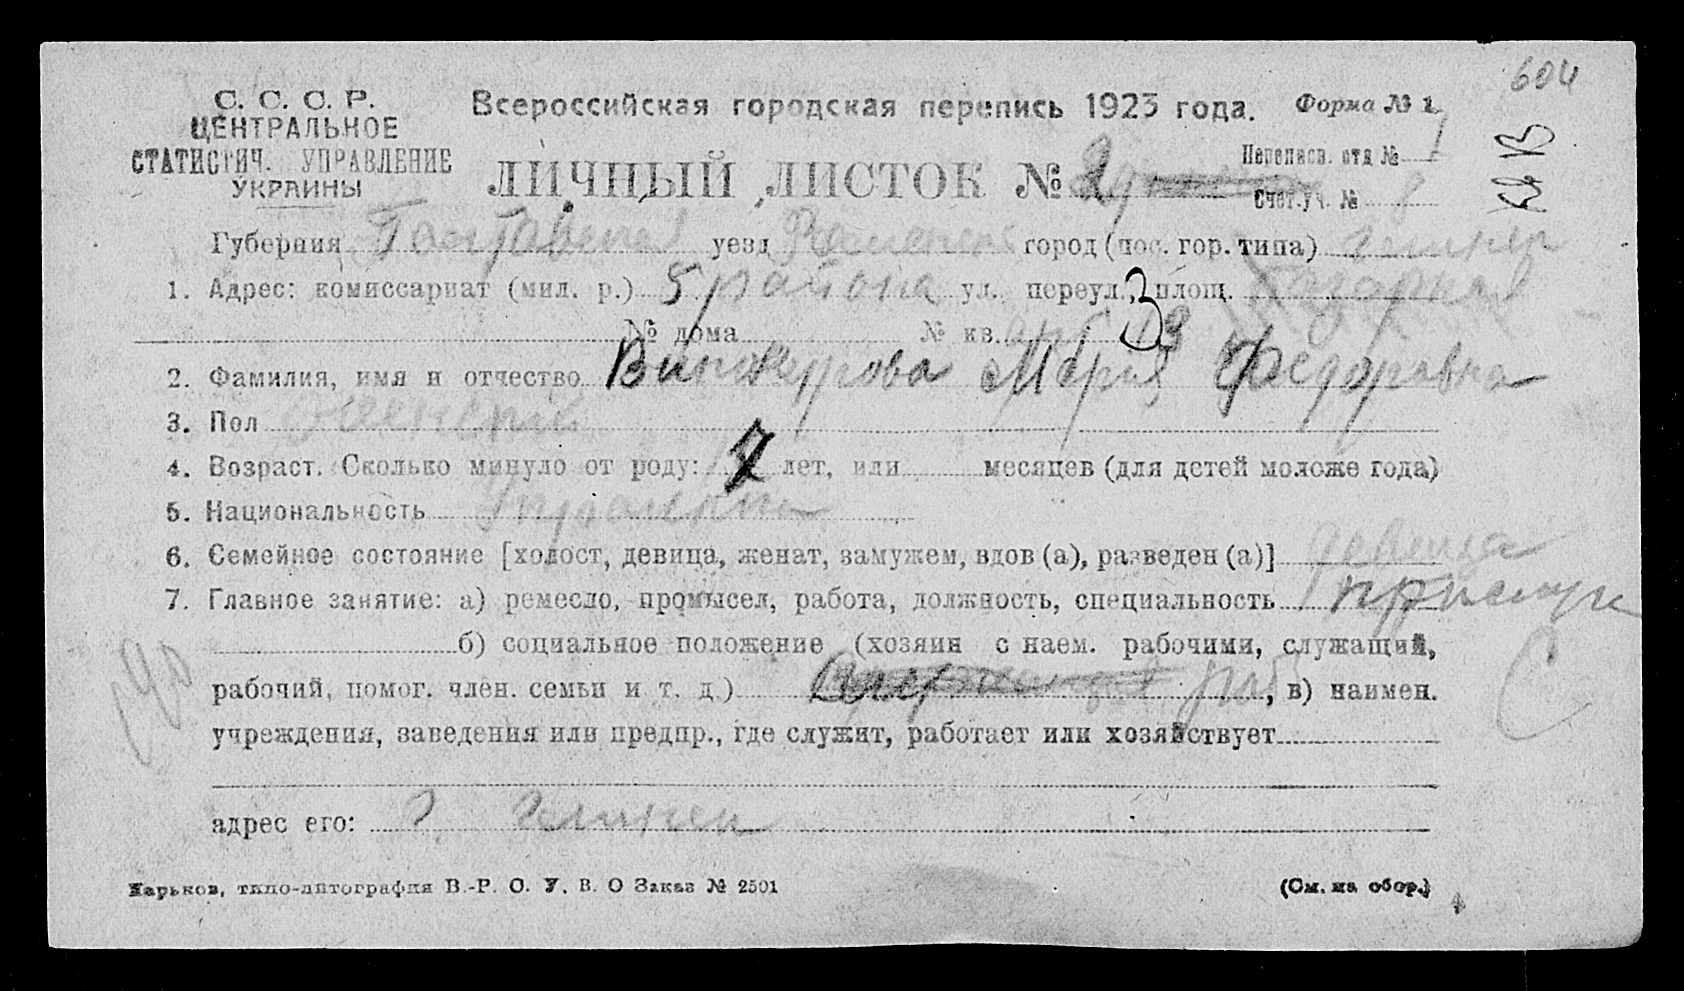 604
С. С. С. Р.
ЦЕНТРАЛЬНОЕ
СТАТИСТИЧ. УПРАВЛЕНИЕ
УКРАИНЫ
Всероссийская городская перепись 1923 года. Форма № 1
ЛИЧНЫЙ ЛИСТОК № 2
Переписн. отд № 1
Счет. уч. № 8
Губерния Полтавская уезд Роменск город (пос. гор. типа) Глинск
1. Адрес: комиссариат (мил. р.) 5 района ул. переул., площ. Базарная
№ дома № кв. 13
2. Фамилия, имя и отчество Винокурова Мария Федоровна
3. Пол женский
4. Возраст. Сколько минуло от роду: лет, или месяцев (для детей моложе года)
5. Национальность Украинка
6. Семейное состояние [холост, девица, женат, замужем, вдов (а), разведен (а)] девица
7. Главное занятие: а) ремесло, промысел, работа, должность, специальность прислуга
б) социальное положение (хозяин с наем. рабочими, служащий,
рабочий, помог. член. семьи и т. д.) раб, в) наимен.
учреждения, заведения или предпр., где служит, работает или хозяйствует
адрес его: г Глинск
Харьков, типо-литография В.-Р. О. У. В. О Заказ № 2501
(См. на обор.)